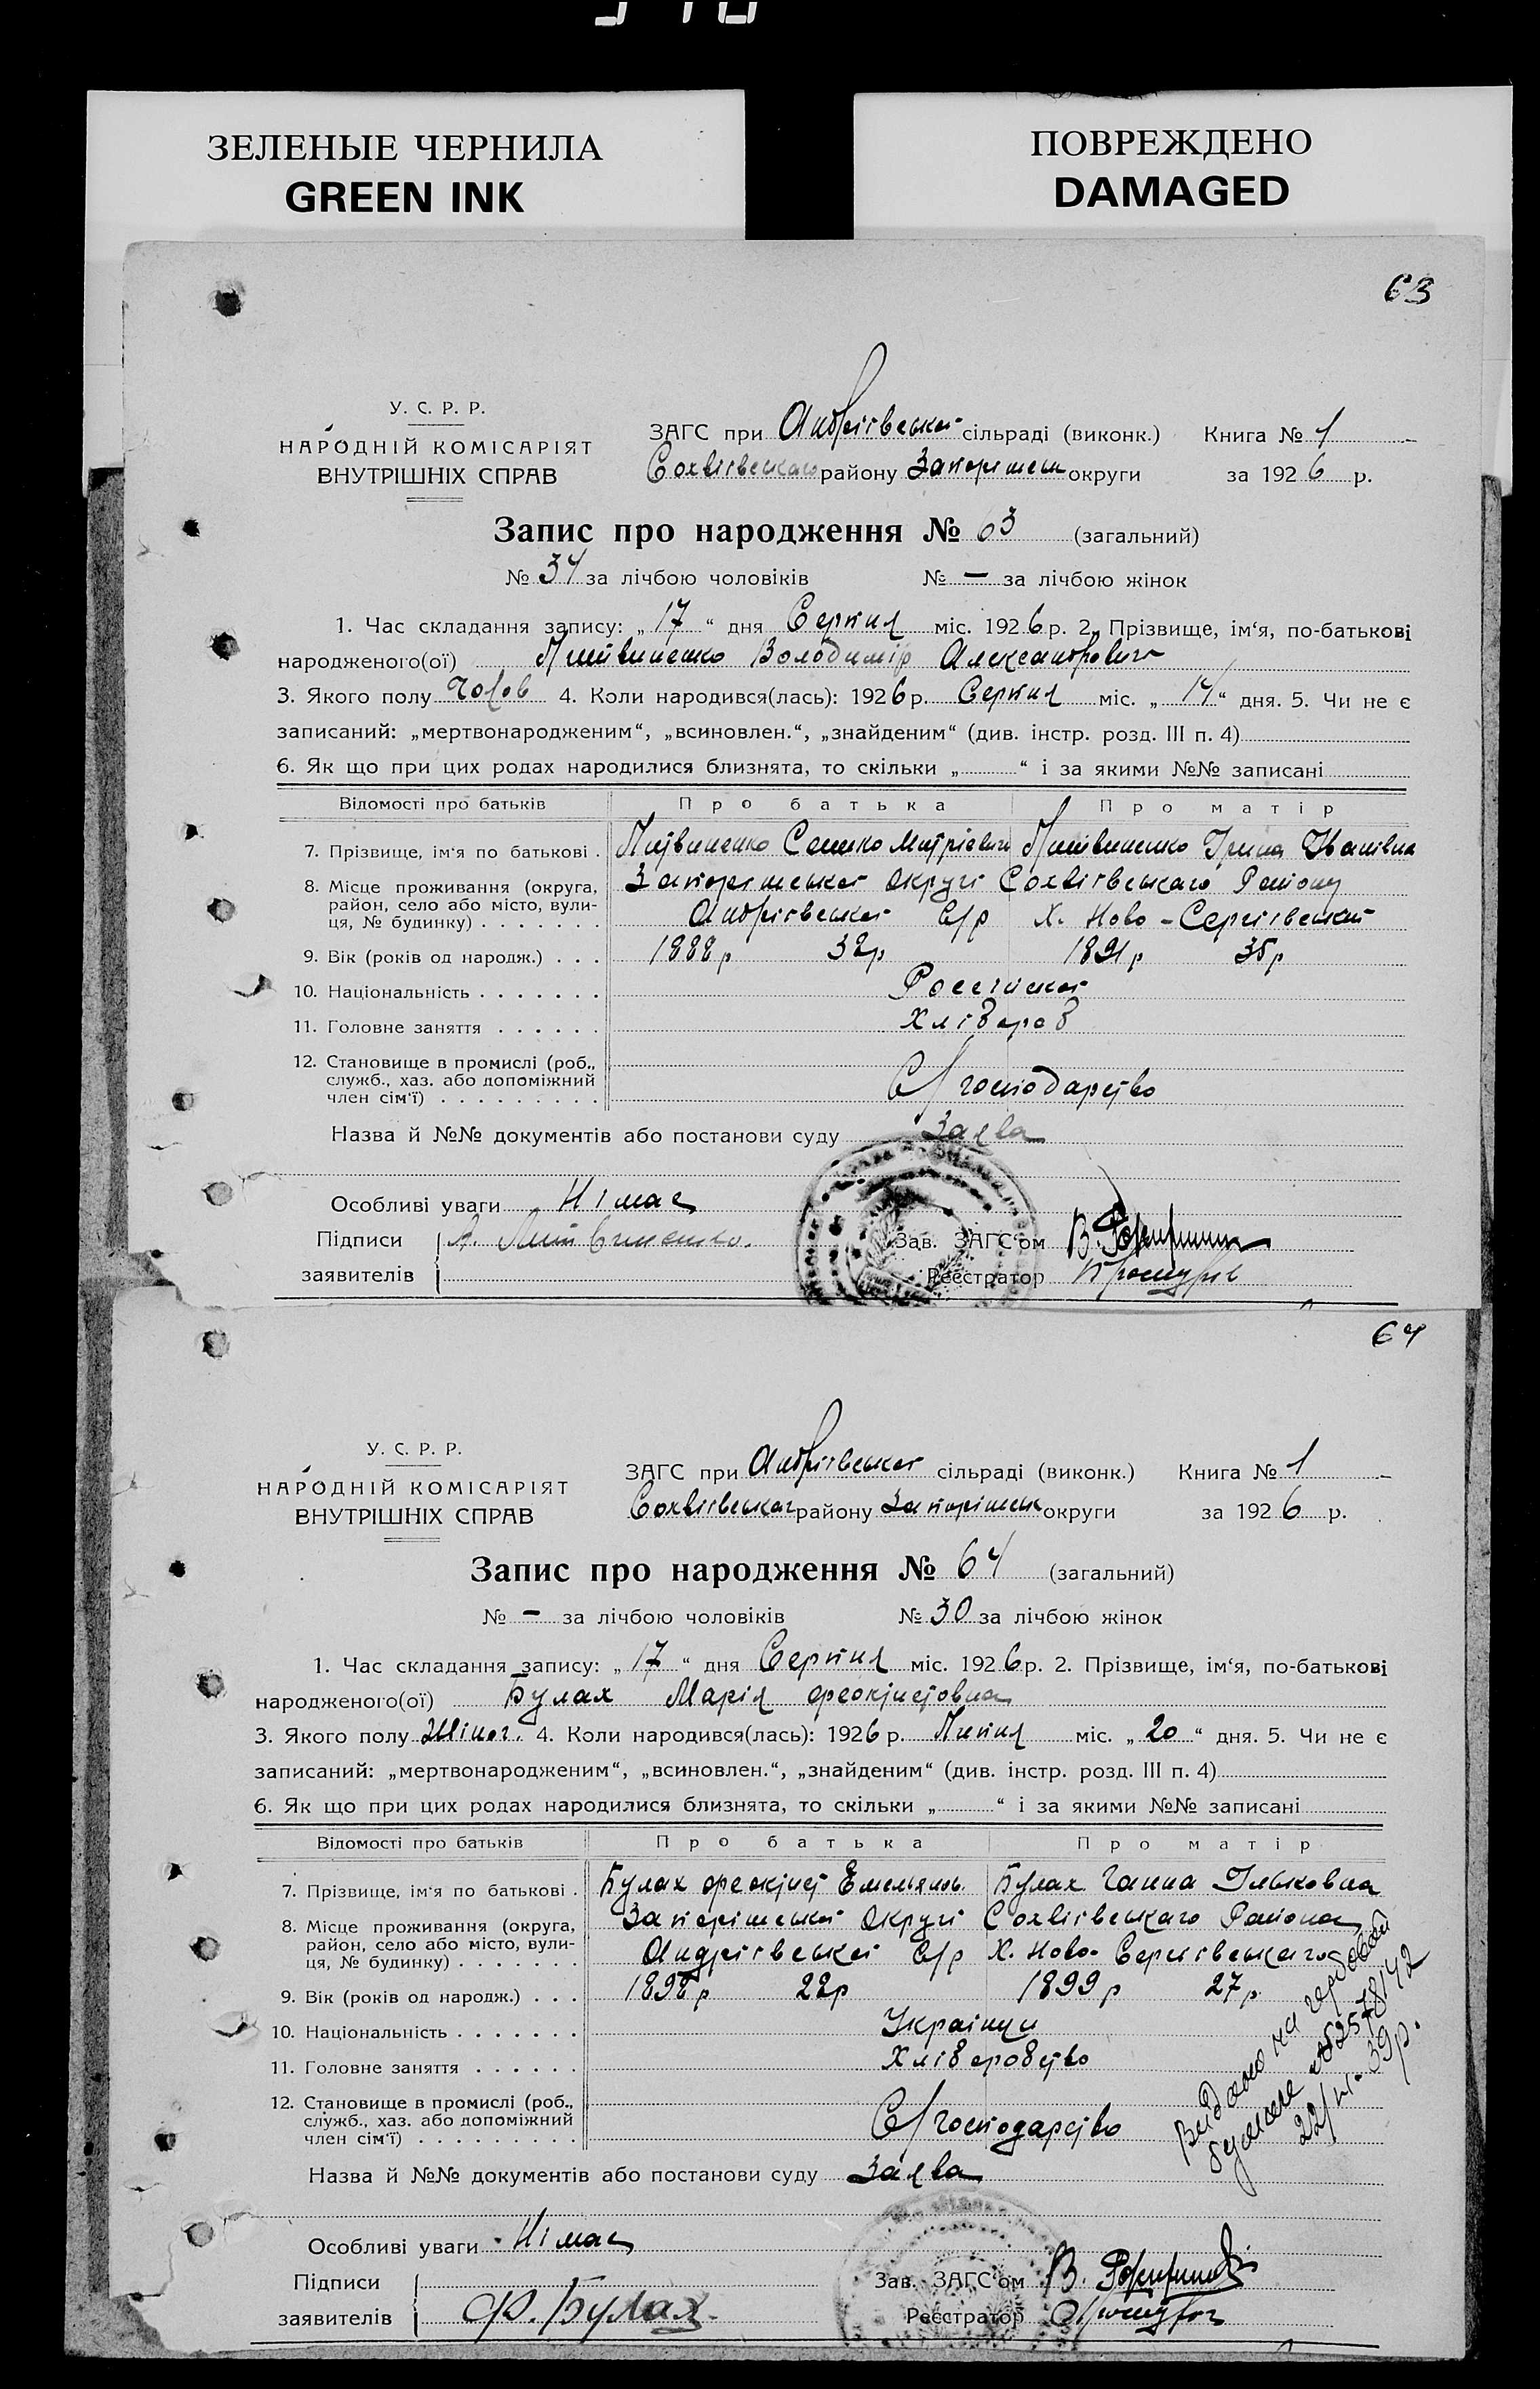 ЗЕЛЕНЫЕ ЧЕРНИЛА
GREEN INK
ПОВРЕЖДЕНО
DAMAGED
63
У. С. Р. Р.
НАРОДНІЙ КОМІСАРІЯТ
ВНУТРІШНІХ СПРАВ
ЗАГС при Андріївської сільраді (виконк.) Книга № 1
району Запоріжськ округи за 1926 р.
Запис про народження № 63 (загальний)
№ 34 за лічбою чоловіків № — за лічбою жінок
1. Час складання запису: „17“ дня Серпня міс. 1926 р. 2. Прізвище, ім‘я, по-батькові
народженого(ої) Литвиненко Володимір Александрович
3. Якого полу Чолов 4. Коли народився(лась): 1926 р. Серпня міс. „14“ дня. 5. Чи не є
записаний: „мертвонародженим“, „всиновлен.“, „знайденим“ (див. інстр. розд. III п. 4)
6. Як що при цих родах народилися близнята, то скільки „ “ і за якими №№ записані
Відомості про батьків Про батька Про матір
7. Прізвище, ім‘я по батькові . Литвиненко Сашко Митрієвич Литвиненко Ірина Іванівна
8. Місце проживання (округа, район, село або місто, вулиця, № будинку) . . . . . . . Запоріжської Округі Району
Андріївської С/р Х. Ново-Сергіївський
9. Вік (років од народж.) . . . 1888 р 38 р 1891 р 35 р
10. Національність . . . . . . .
11. Головне заняття . . . . . . Хлібороб
12. Становище в промислі (роб., служб., хаз. або допоміжний член сім‘ї) . . . . . . . . . С/господарство
Назва й №№ документів або постанови суду Заява
Особливі уваги Німає
Підписи А. Литвиненко.
заявителів
Зав. ЗАГС‘ом
Реєстратор
64
У. С. Р. Р.
НАРОДНІЙ КОМІСАРІЯТ
ВНУТРІШНІХ СПРАВ
ЗАГС при Андріївської сільраді (виконк.) Книга № 1
району Запоріжськ округи за 1926 р.
Запис про народження № 64 (загальний)
№ — за лічбою чоловіків № 30 за лічбою жінок
1. Час складання запису: „17“ дня Серпня міс. 1926 р. 2. Прізвище, ім‘я, по-батькові
народженого(ої) Булах Марія Феоктистовна
3. Якого полу Жіноч. 4. Коли народився(лась): 1926 р. Липня міс. „20“ дня. 5. Чи не є
записаний: „мертвонародженим“, „всиновлен.“, „знайденим“ (див. інстр. розд. III п. 4)
6. Як що при цих родах народилися близнята, то скільки „ “ і за якими №№ записані
Відомості про батьків Про батька Про матір
7. Прізвище, ім‘я по батькові . Булах Феоктист Емельянов. Булах Ганна Ільковна
8. Місце проживання (округа, район, село або місто, вулиця, № будинку) . . . . . . . Запоріжської Округі Района
Андріївської С/р Х. Ново-Сергіївськаго
9. Вік (років од народж.) . . . 1898 р 28 р 1899 р 27 р
10. Національність . . . . . . . Українци
11. Головне заняття . . . . . . Хліборобство
12. Становище в промислі (роб., служб., хаз. або допоміжний член сім‘ї) . . . . . . . . . С/господарство
Назва й №№ документів або постанови суду Заява
Особливі уваги Німає
Підписи
заявителів Ф. Булах.
Зав. ЗАГС‘ом
Реєстратор
Видано на гербовой
бумаге
39 р.